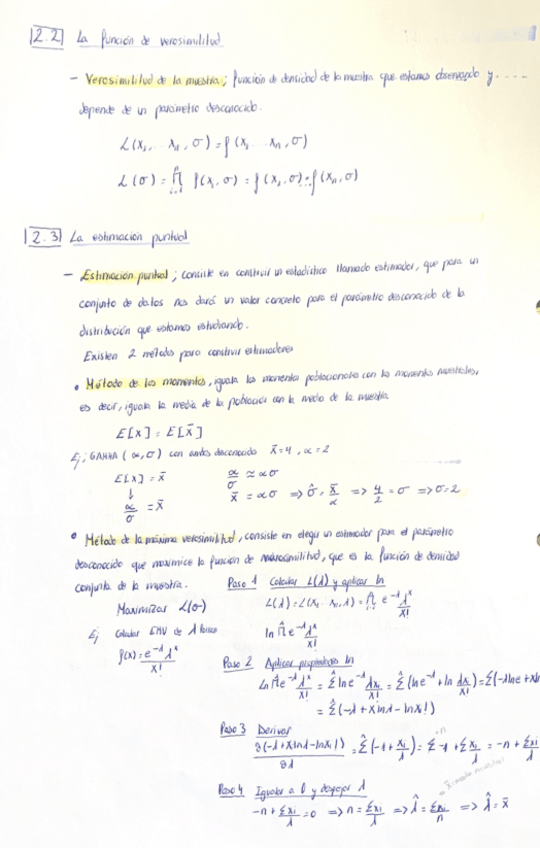 2.2 La función de verosimilitud
- Verosimilitud de la muestra; función de densidad de la muestra que estamos observando y ....
depende de un parámetro desconocido.
L(x₁, ... xₙ, σ) = f(x₁ ... xₙ, σ)
L(σ) = Π f(xᵢ, σ) = f(x₁, σ) ... f(xₙ, σ)
2.3 La estimación puntual
- Estimación puntual; consiste en construir un estadístico llamado estimador, que para un
conjunto de datos nos dará un valor concreto para el parámetro desconocido de la
distribución que estamos estudiando.
Existen 2 métodos para construir estimadores
• Método de los momentos, iguala los momentos poblacionales con los momentos muestrales,
es decir, iguala la media de la población con la media de la muestra
E[x] = E[x̄]
Ej: GAMMA (∝, σ) con ambos desconocido x̄=4, ∝=2
E[x] = x̄ ∝/σ ≈ ∝σ
↓
∝/σ = x̄ x̄ = ∝σ => σ̂ = x̄/∝ => 4/2 = σ => σ=2
• Método de la máxima verosimilitud, consiste en elegir un estimador para el parámetro
desconocido que maximice la función de verosimilitud, que es la función de densidad
conjunta de la muestra. Paso 1 Calcular L(λ) y aplicar ln
Maximizar L(σ) L(λ) = L(x₁ ... xₙ, λ) = Π e^-λ λ^x / x!
Ej Calcular EMV de λ
f(x) = e^-λ λ^x / x! ln Π e^-λ λ^x / x!
Paso 2 Aplicar propiedades ln
ln Π e^-λ λ^x / x! = Σ ln e^-λ λx / x! = Σ (ln e^-λ + ln λx / x!) = Σ(-λ ln e + x ln
= Σ (-λ + x lnλ - ln x!)
Paso 3 Derivar
∂(-λ + x lnλ - ln x!) / ∂λ = Σ (-1 + xᵢ/λ) = Σ -1 + Σ xᵢ/λ = -n + Σ xᵢ
-n
Paso 4 Igualar a 0 y despejar λ
-n + Σxᵢ/λ = 0 => n = Σxᵢ/λ => λ̂ = Σxᵢ/n => λ̂ = x̄